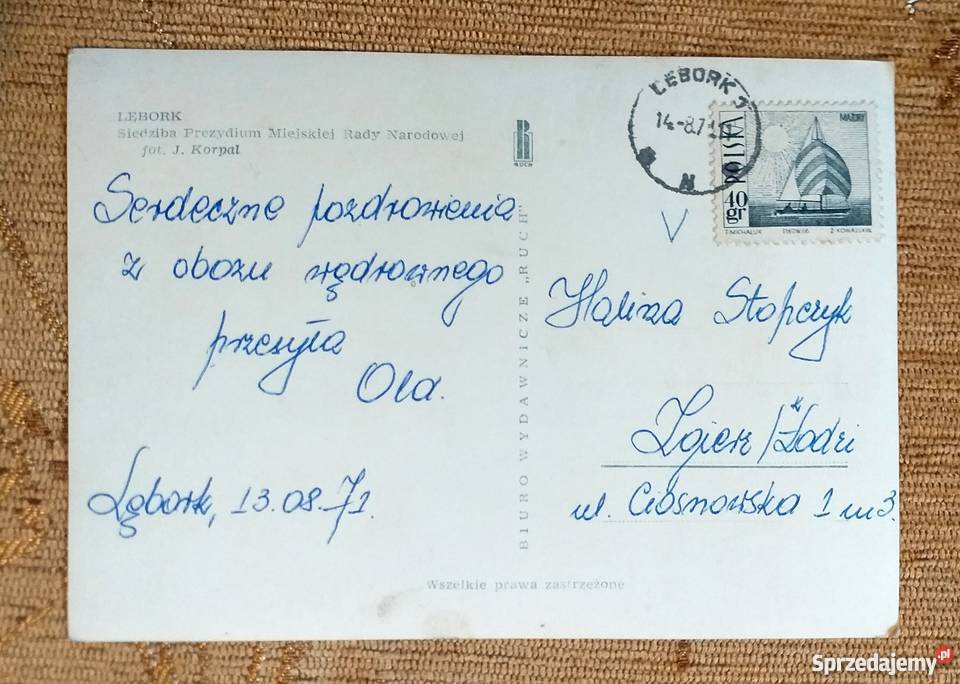 LĘBORK
Siedziba Prezydium Miejskiej Rady Narodowej
fot. J. Korpal
RUCH
LĘBORK 1
14-8.71
N
POLSKA
40 gr
MAZURY
T.MICHALUK
PWPW.66
Z KOWALSKI
Serdeczne pozdrowienia
z obozu wędrownego
przesyła
Ola.
Lębork, 13.08.71.
BIURO WYDAWNICZE „RUCH"
V
Halina Stopczyk
Zgierz /k Łodzi
ul. Ciosnowska 1 m 3.
Wszelkie prawa zastrzeżone
Sprzedajemy.pl